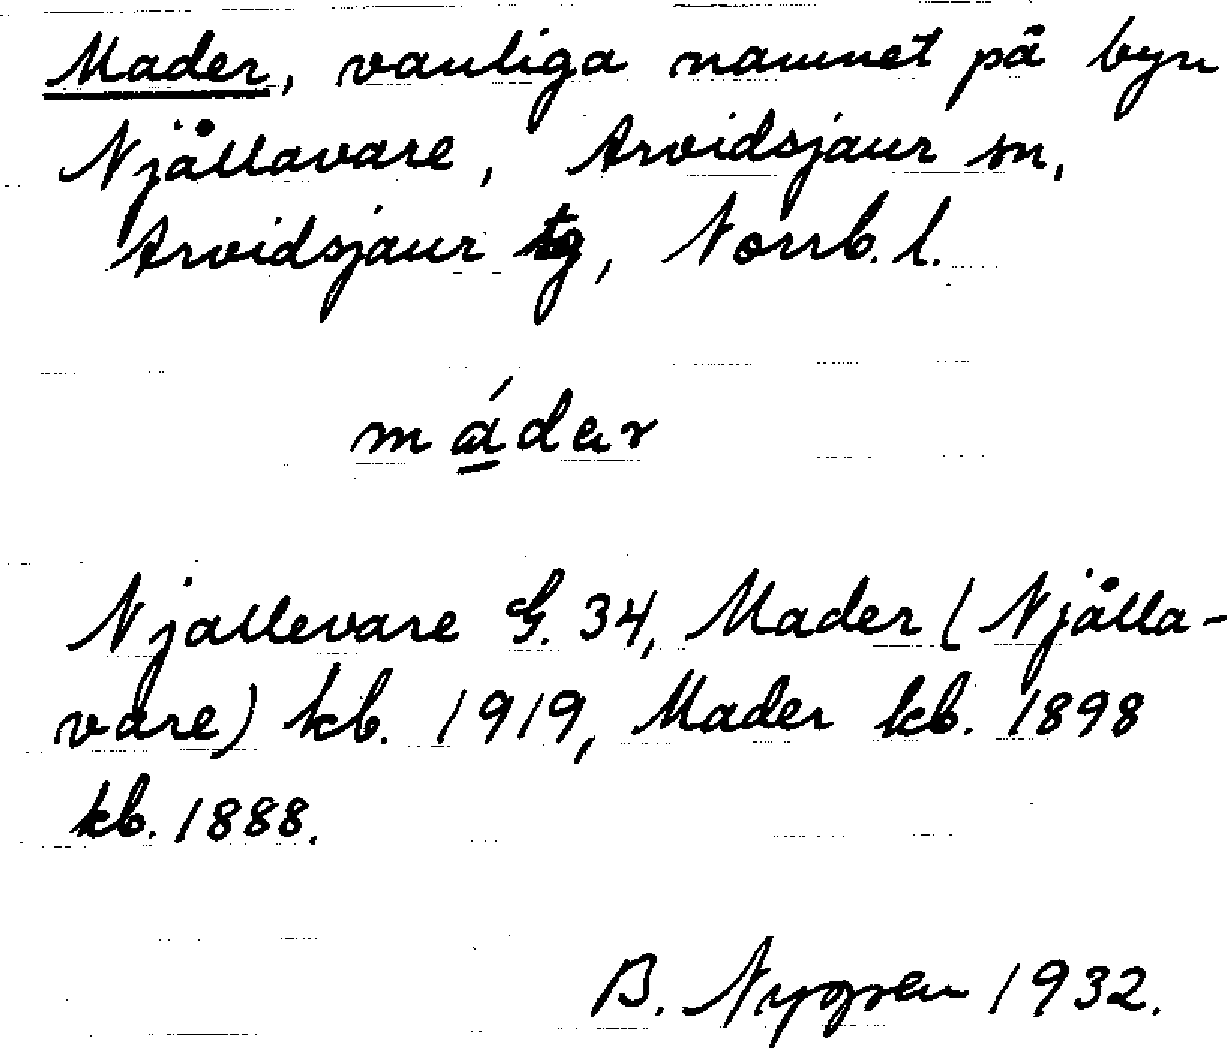 Mader, vanliga namnet på byn
Njållavare, Arvidsjaur sn,
Arvidsjaur tg, Norrb. l.
mádar
Njallevare G. 34, Mader (Njålla-
vare) kb. 1919, Mader kb. 1898
kb. 1888.
B. Nygren 1932.